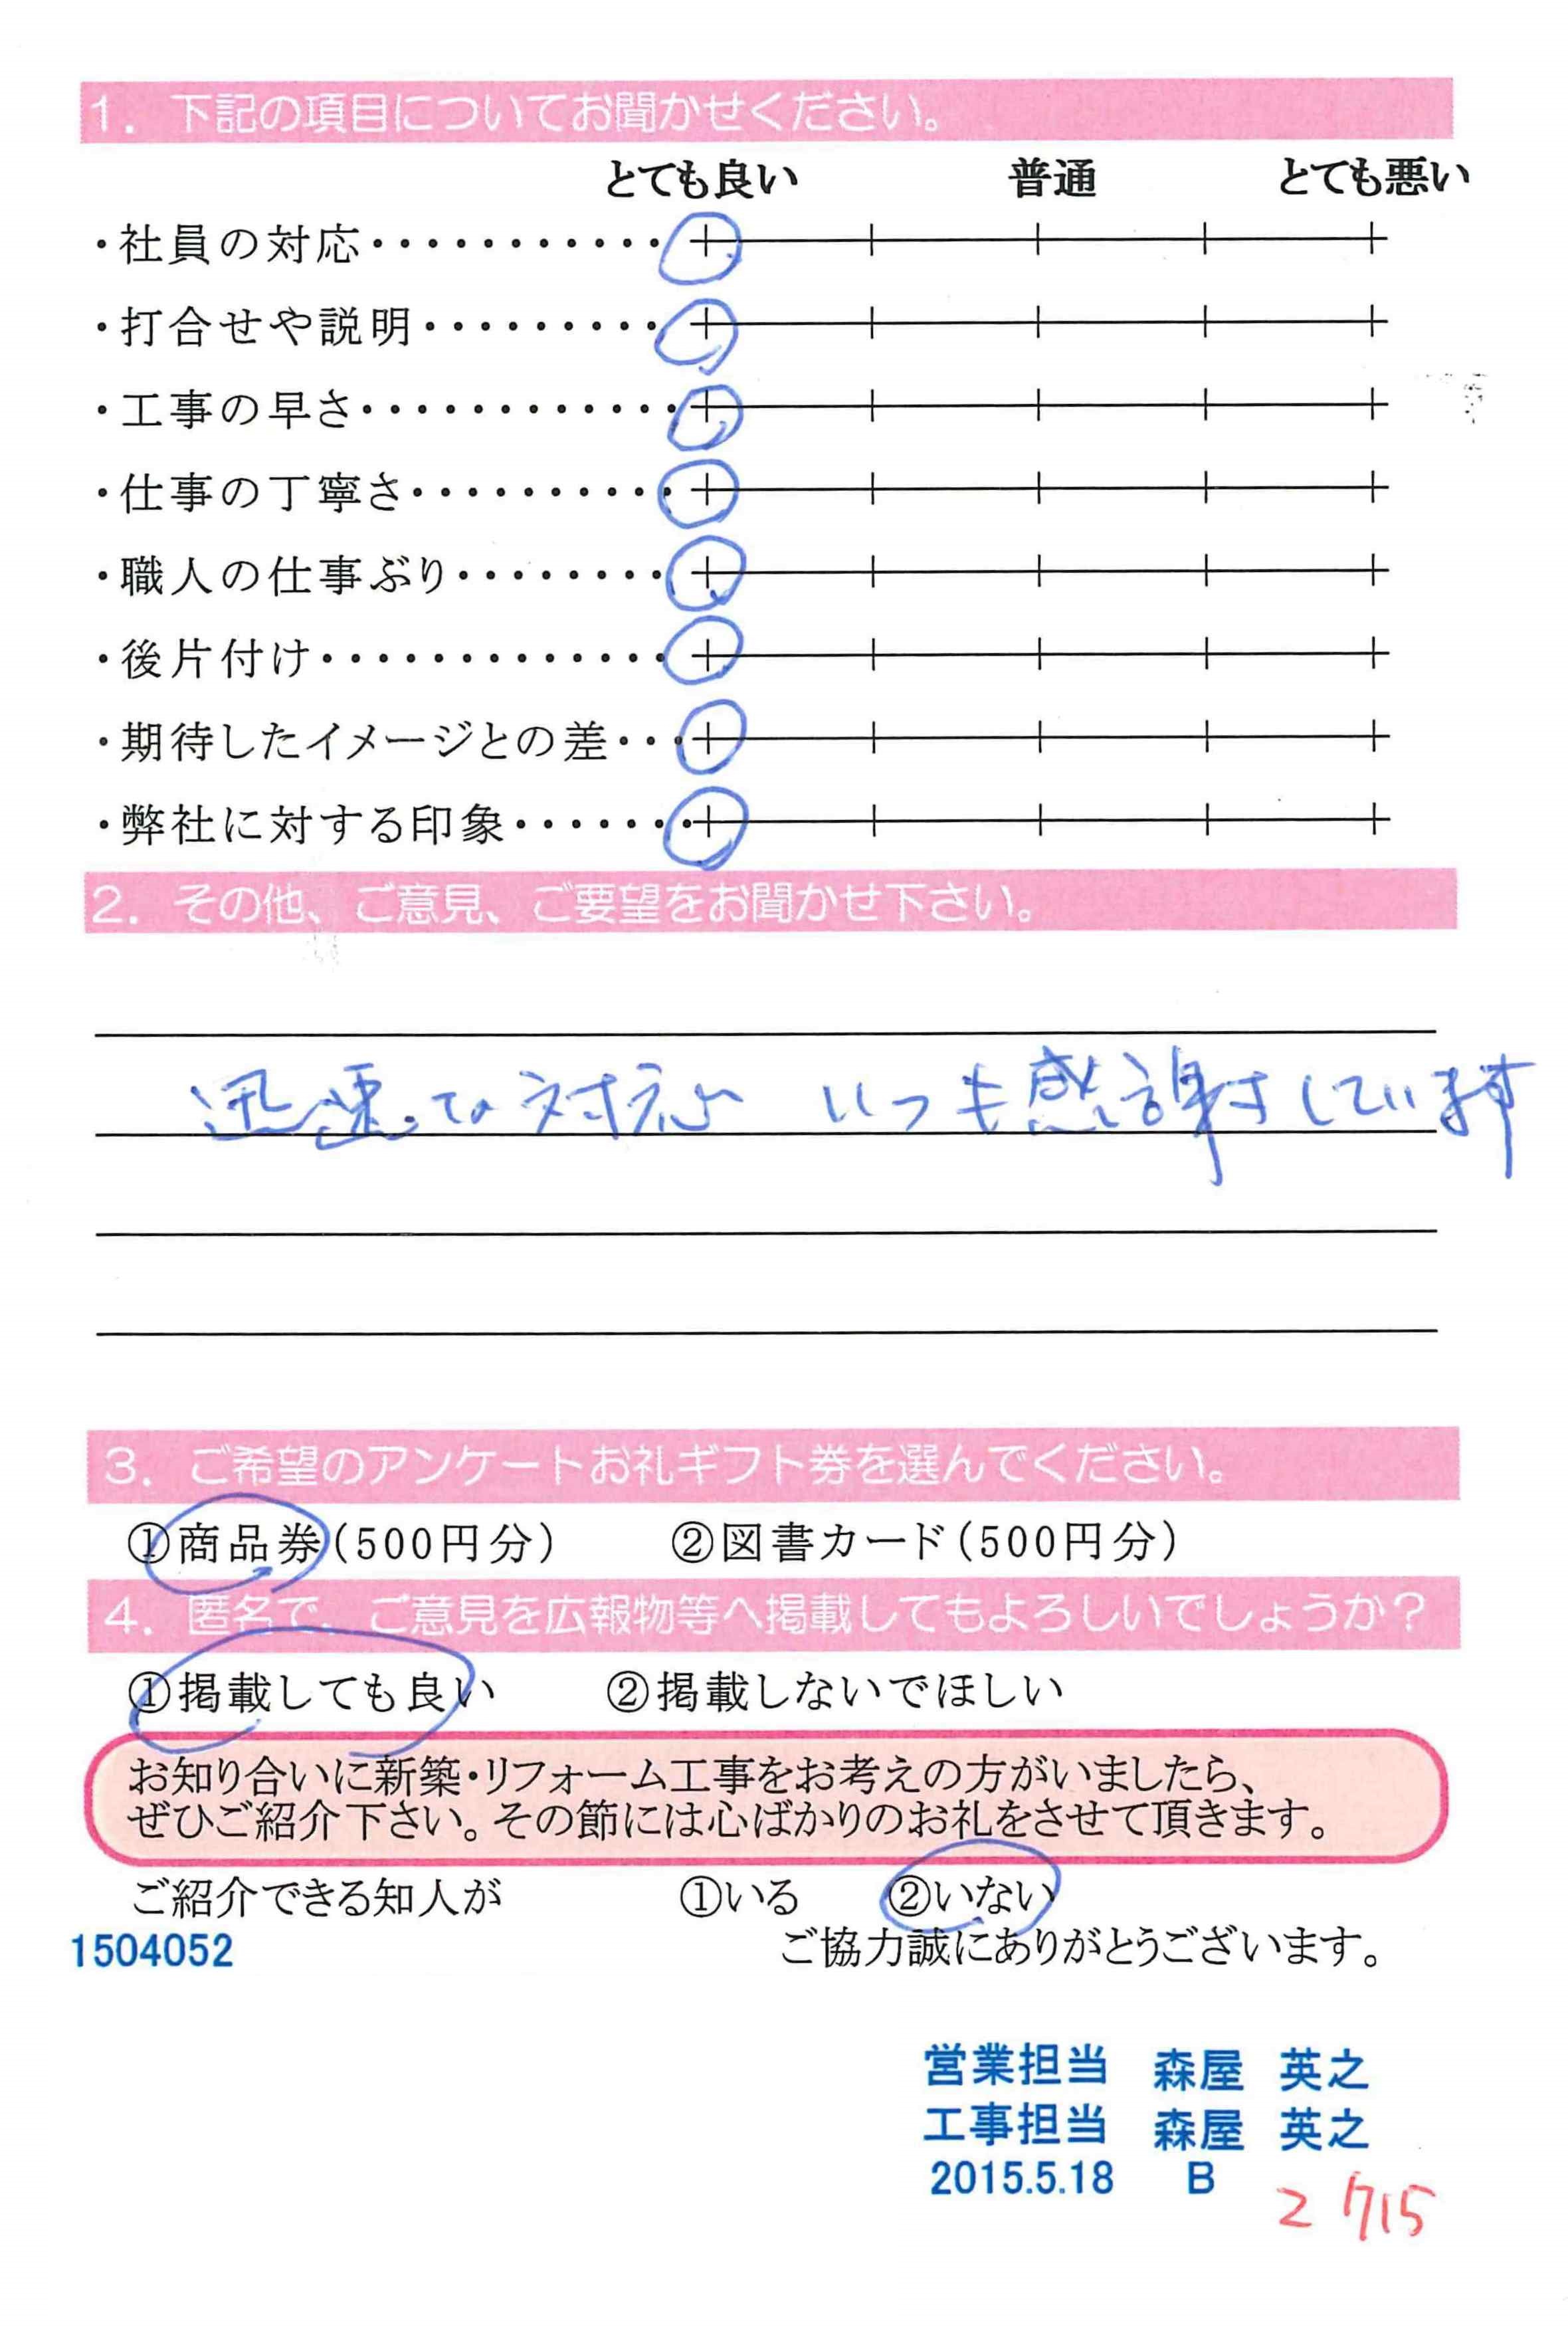 1. 下記の項目についてお聞かせください。
とても良い 普通 とても悪い
・社員の対応・・・・・・・・・・・
・打合せや説明・・・・・・・・・
・工事の早さ・・・・・・・・・・・・
・仕事の丁寧さ・・・・・・・・・・
・職人の仕事ぶり・・・・・・・・
・後片付け・・・・・・・・・・・・・
・期待したイメージとの差・・・
・弊社に対する印象・・・・・・・
2. その他、ご意見、ご要望をお聞かせ下さい。
迅速な対応 いつも感謝しています
3. ご希望のアンケートお礼ギフト券を選んでください。
①商品券(500円分) ②図書カード(500円分)
4. 匿名で、ご意見を広報物等へ掲載してもよろしいでしょうか?
①掲載しても良い ②掲載しないでほしい
お知り合いに新築・リフォーム工事をお考えの方がいましたら、
ぜひご紹介下さい。その節には心ばかりのお礼をさせて頂きます。
ご紹介できる知人が ①いる ②いない
1504052 ご協力誠にありがとうございます。
営業担当 森屋 英之
工事担当 森屋 英之
2015.5.18 B
2715